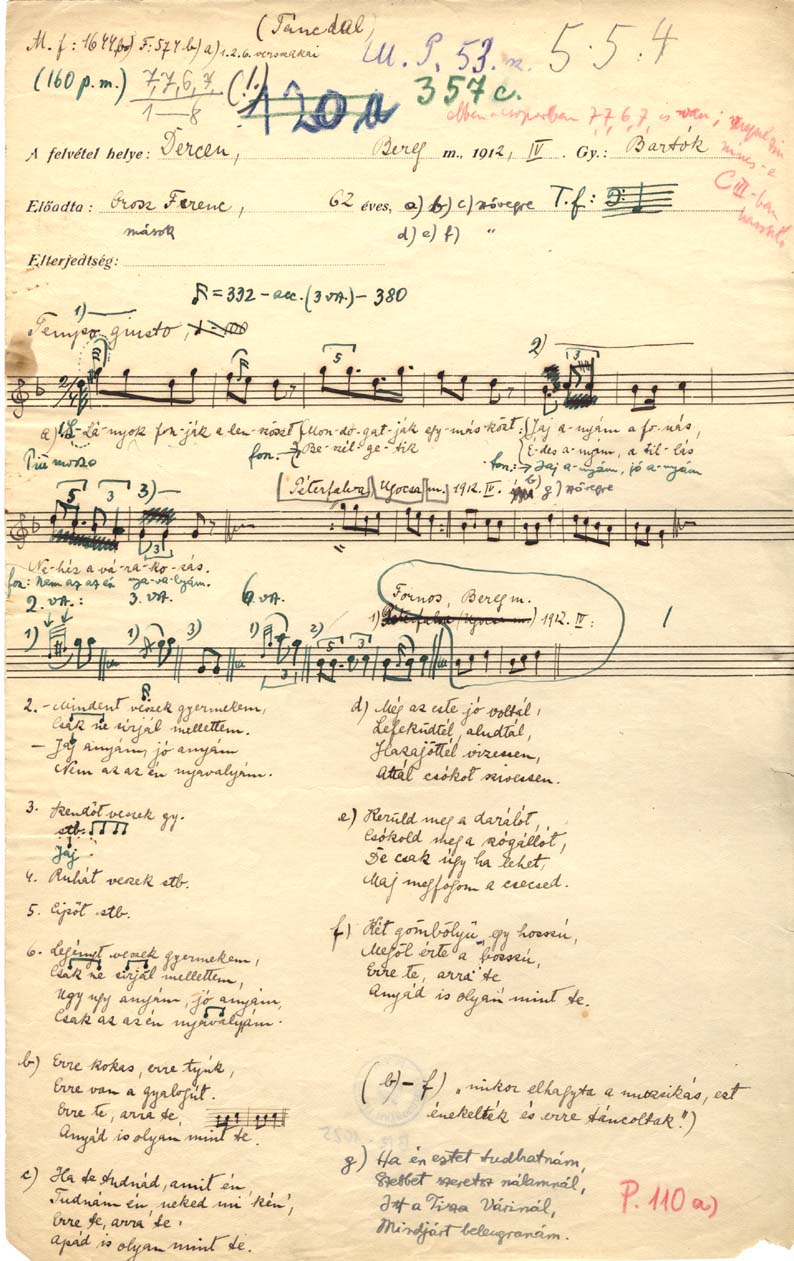 (Táncdal)
M. f: 1644b) F: 574 b) a) 1.2.6. versszakai
M. P. 53.
5 5 4
(160 p. m.) 7, 7, 6, 7, (!.)
1—8
120a
357 c.
ebben a csoportban 7 7, 6, 7, is van;
A felvétel helye: Dercen, Bereg m., 1912, IV. Gy.: Bartók
C III-ban
Előadta: Orosz Ferenc, 62 éves, a) b) c) szövegre T. f:
mások d) e) f) "
Elterjedtség:
♪ = 332 - acc. (3. va.) - 380
1)
Tempo giusto,
5 2) 3
a) Lányok fon-ják a len-szöszt Mon-do-gat-ják egy-más-közt: Jaj a-nyám a fo-nás,
fon. → Be-szél-ge-tik
É-des a-nyám, a til-lás
Più mosso
fon: → Jaj a-nyám, jó a-nyám
5 3 3)
Péterfalva Ugocsa m. 1912. IV. b) g) szövegre
Ne-héz a vá-ra-ko-zás.
fon: nem az az én nya-va-lyám.
2. va.: 3. va. 6. va.
Fornos, Bereg m.
1) Péterfalva (Ugocsa m.) 1912. IV:
1) 1) 3) 1) 2) 5 3
2. - Mindent veszek gyermekem,
Csak ne sírjál mellettem.
- Jaj anyám, jó anyám
Nem az az én nyavalyám.
3. Kendőt veszek gy.
stb.
Jaj
4. Ruhát veszek stb.
5. Cipőt stb.
6. Legényt veszek gyermekem,
Csak ne sírjál mellettem,
Ugy ugy anyám, jó anyám,
Csak az az én nyavalyám.
b) Erre kokas, erre tyúk,
Erre van a gyalogút.
Erre te, arra te,
Anyád is olyan mint te.
c) Ha te tudnád, amit én,
Tudnám én, neked mi kén',
Erre te, arra te,
Apád is olyan mint te.
d) Még az este jó voltál,
Lefeküdtél, aludtál,
Hazajöttél vizessen,
Attál csókot szivessen.
e) Kerüld meg a darálót,
Csókold meg a szógállót,
De csak úgy ha lehet,
Maj megfogom a csecsed.
f) Két gömbölyü egy hosszú,
Megöl érte a bosszú,
Erre te, arra te
Anyád is olyan mint te.
(b) - f) „mikor elhagyta a muzsikás, ezt
énekelték és erre táncoltak.")
g) Ha én eztet tudhatnám,
Szebbet szeretsz nálamnál,
Itt a Tisza Várinál,
Mindjárt beleugranám.
P. 110 a)